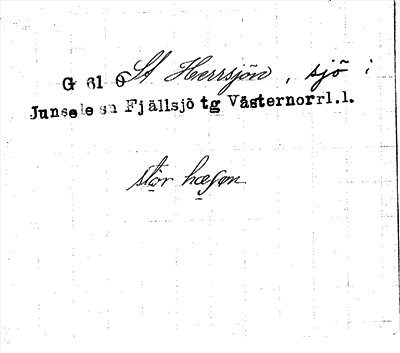 G 61 Ö St Herrsjön, sjö i
Junsele sn Fjällsjö tg Västernorrl.l.
stor hæʃøn